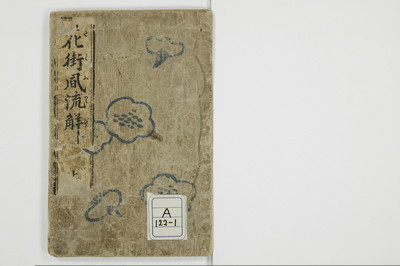 花街風流解
上
A
122-1